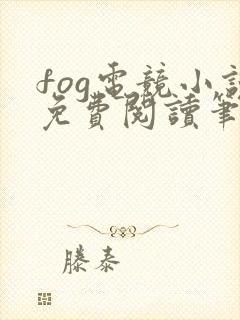 fog電競小說
免費閱讀筆
滕泰